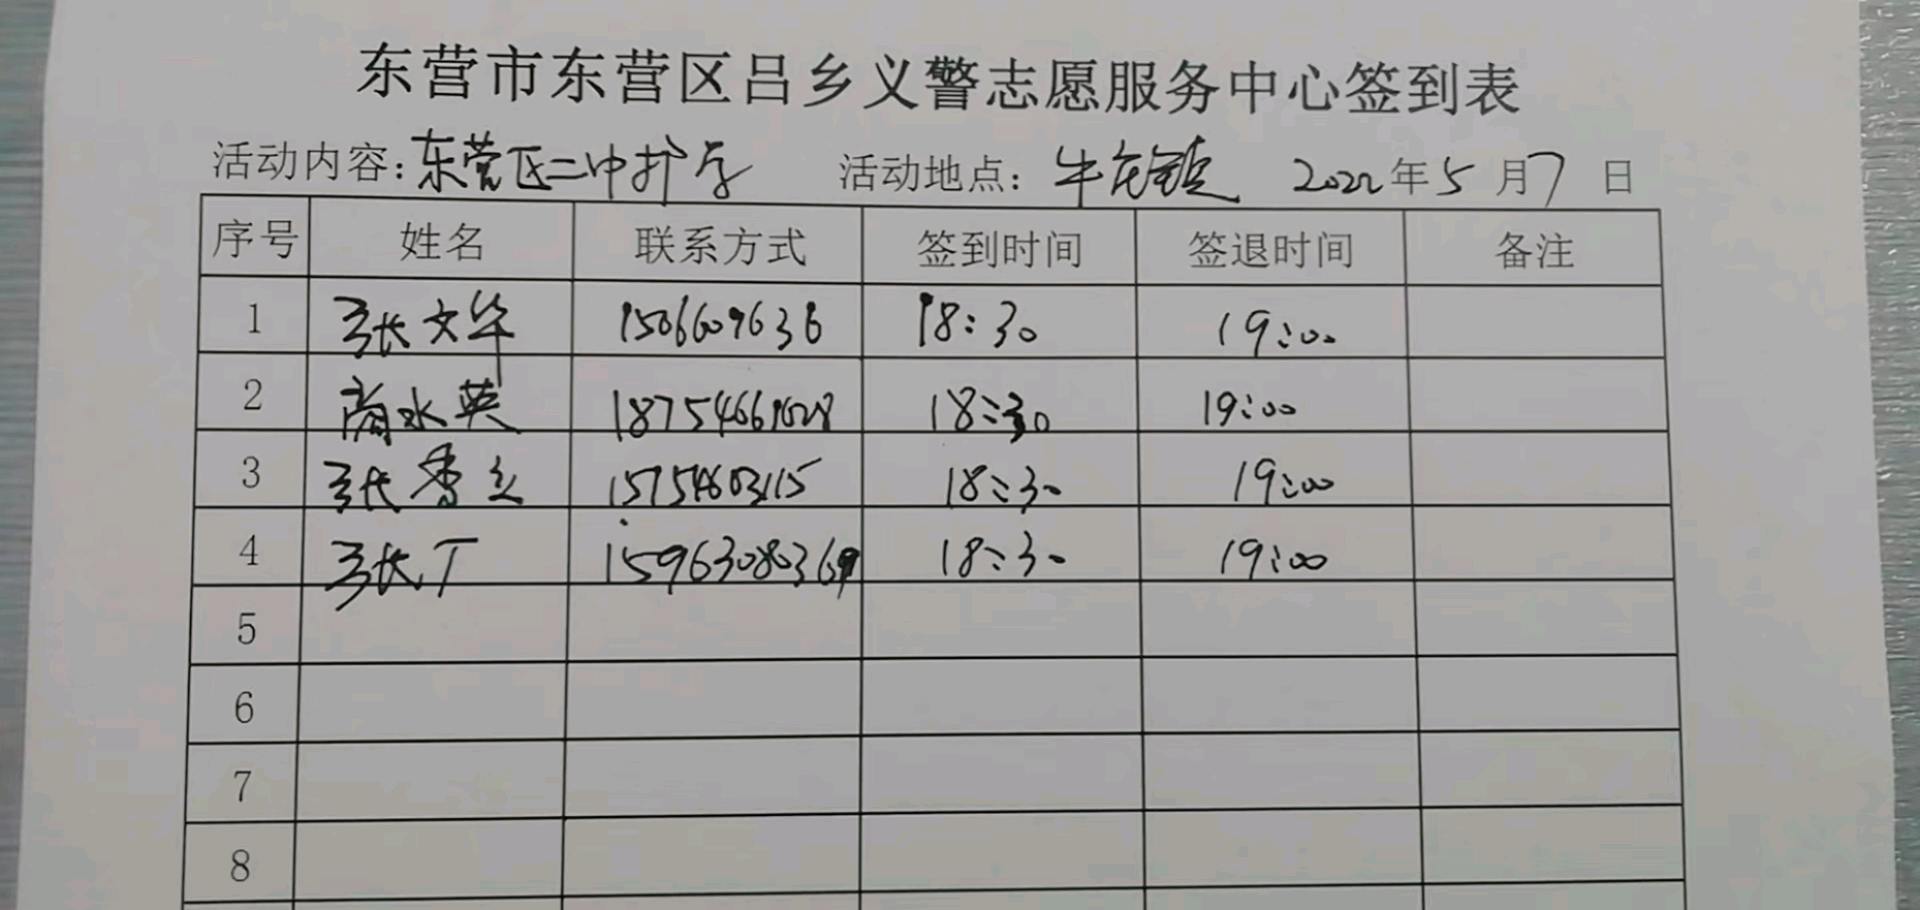 东营市东营区吕乡义警志愿服务中心签到表
活动内容：东营区二中护学 活动地点：牛庄镇 2022年5月7日
序号 姓名 联系方式 签到时间 签退时间 备注
1 张文华 1506609636 18:30 19:00
2 尚水英 18:30 19:00
3 张秀立 15754603115 18:30 19:00
4 张丁 15963080369 18:30 19:00
5
6
7
8